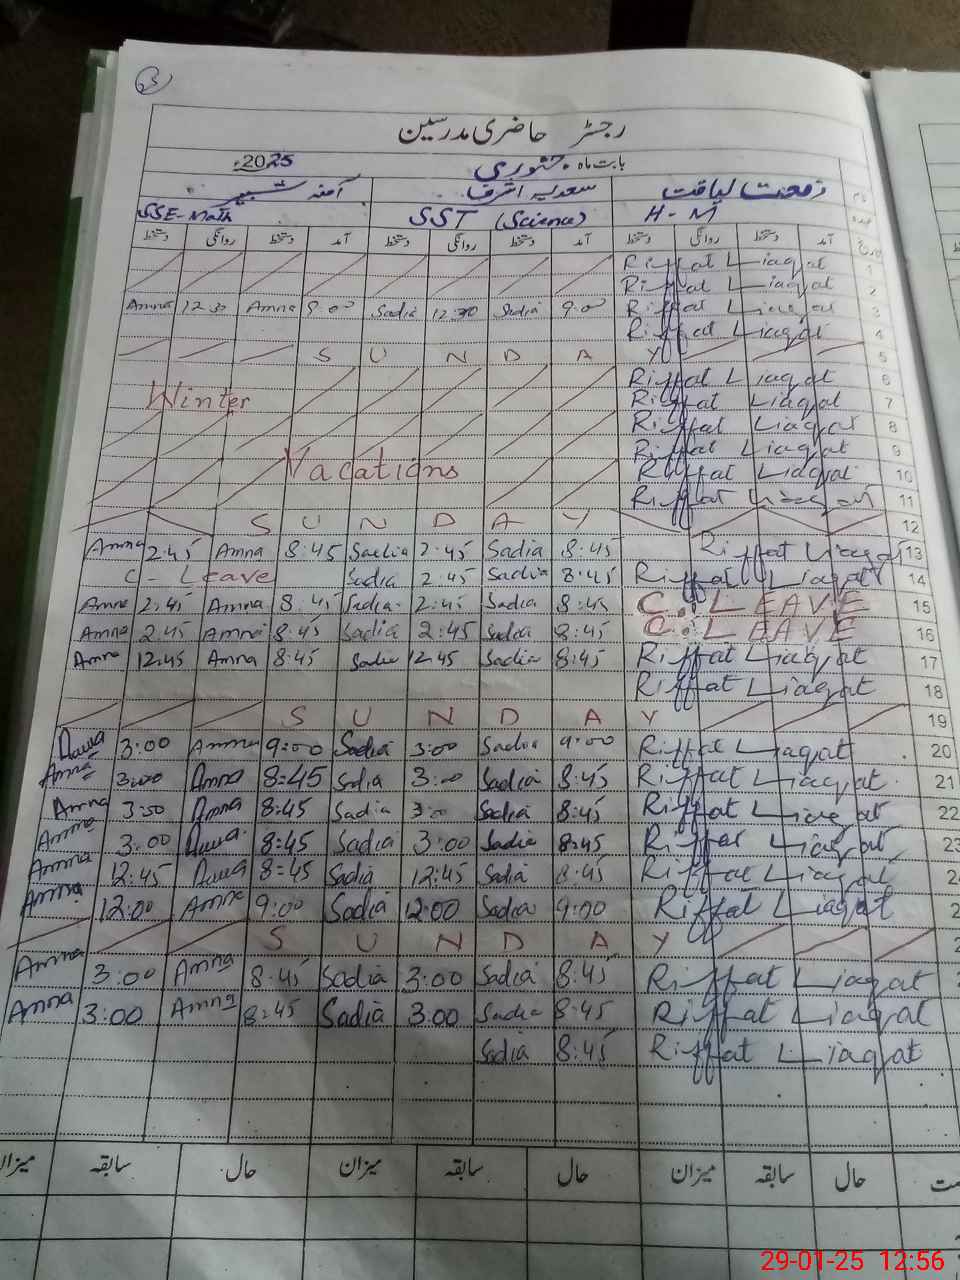 3
رجسٹر حاضری مدرسین
بابت ماہ جنوری 2025ء
رفعت لیاقت سعدیہ اشرف آمنہ شبیر
SSE-Math SST (Science) H-M
دستخط روانگی دستخط آمد دستخط روانگی دستخط آمد دستخط روانگی دستخط آمد تاریخ
Riffat Liaqat 1
Riffat Liaqat 2
Amna 12:30 Amna 9:00 Sadia 12:30 Sadia 9:00 Riffat Liaqat 3
Riffat Liaqat 4
S U N D A Y 5
Riffat Liaqat 6
Winter Riffat Liaqat 7
Riffat Liaqat 8
Riffat Liaqat 9
Vacations Riffat Liaqat 10
Riffat Liaqat 11
S U N D A Y 12
Amna 2:45 Amna 8:45 Sadia 2:45 Sadia 8:45 Riffat Liaqat 13
C - Leave Sadia 2:45 Sadia 8:45 Riffat Liaqat 14
Amna 2:45 Amna 8:45 Sadia 2:45 Sadia 8:45 C. LEAVE 15
Amna 2:45 Amna 8:45 Sadia 2:45 Sadia 8:45 C. LEAVE 16
Amna 12:45 Amna 8:45 Sadia 12:45 Sadia 8:45 Riffat Liaqat 17
Riffat Liaqat 18
S U N D A Y 19
3:00 Amna 9:00 Sadia 3:00 Sadia 9:00 Riffat Liaqat 20
Amna 3:00 Amna 8:45 Sadia 3:00 Sadia 8:45 Riffat Liaqat 21
Amna 3:00 Amna 8:45 Sadia 3:00 Sadia 8:45 Riffat Liaqat 22
Amna 3:00 8:45 Sadia 3:00 Sadia 8:45 Riffat Liaqat 23
Amna 12:45 8:45 Sadia 12:45 Sadia 8:45 Riffat Liaqat 2
Amna 12:00 Amna 9:00 Sadia 12:00 Sadia 9:00 Riffat Liaqat 2
S U N D A Y 2
Amna 3:00 Amna 8:45 Sadia 3:00 Sadia 8:45 Riffat Liaqat
Amna 3:00 Amna 8:45 Sadia 3:00 Sadia 8:45 Riffat Liaqat
Sadia 8:45 Riffat Liaqat
حال سابقہ میزان حال سابقہ میزان حال سابقہ میزان
29-01-25 12:56